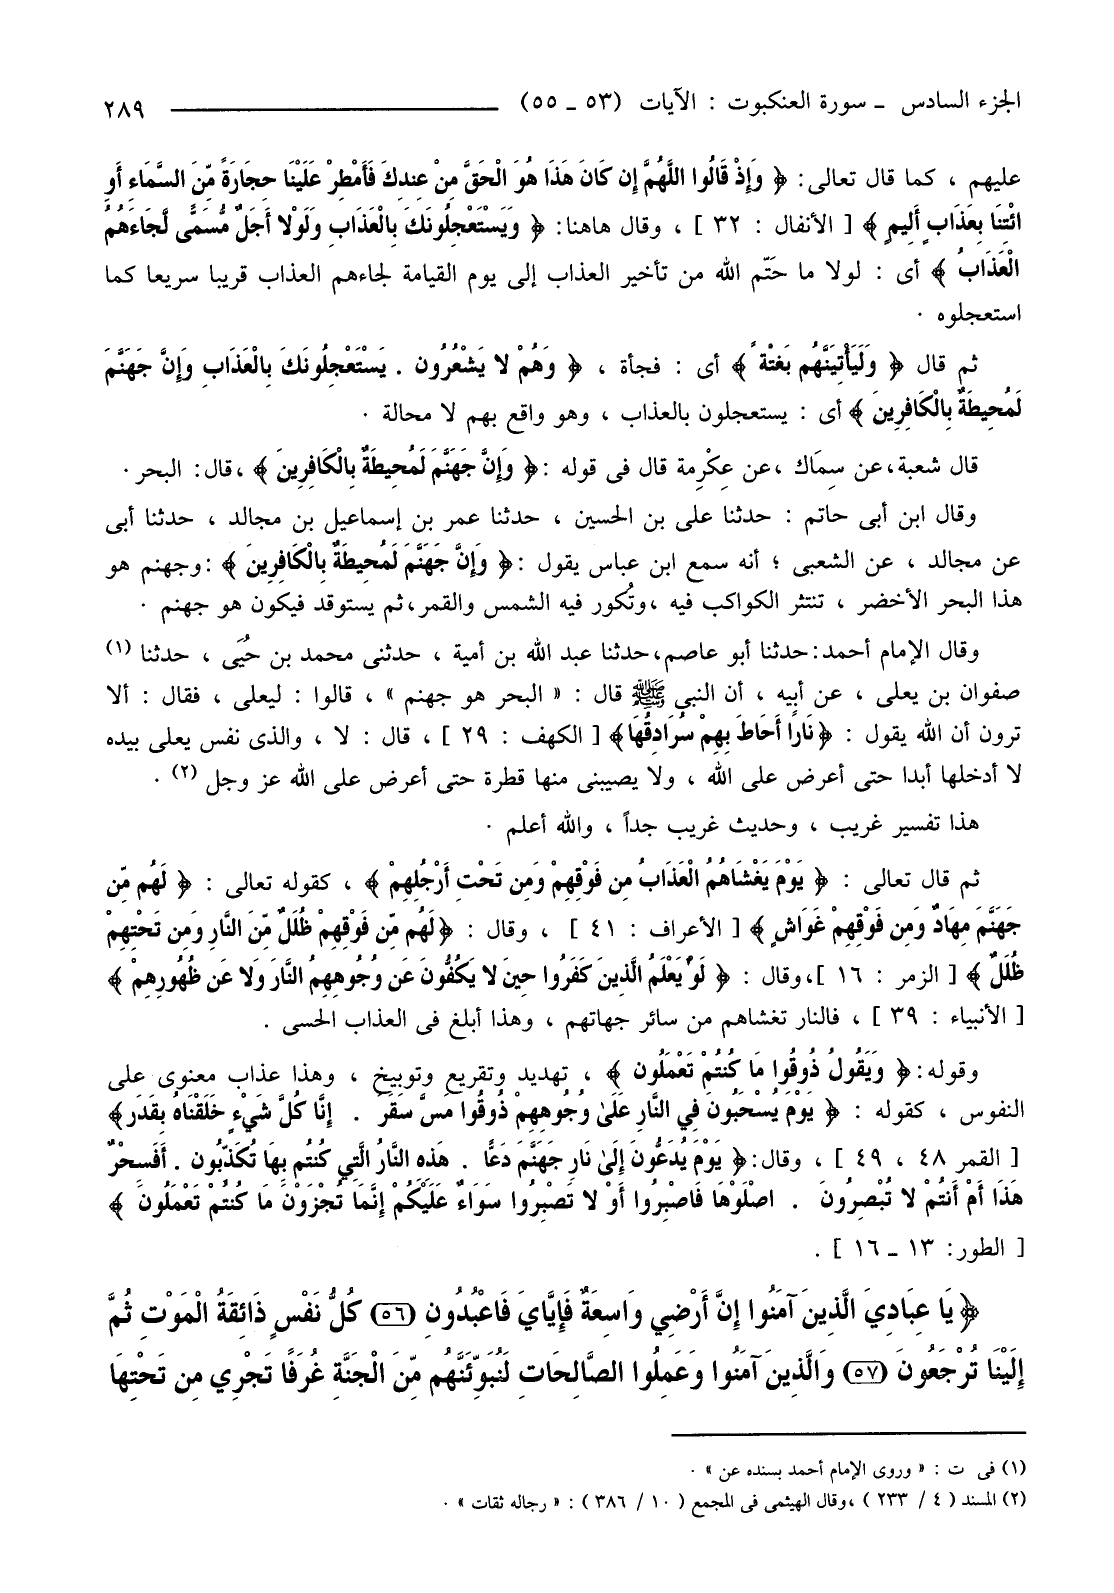 الجزء السادس ـ سورة العنكبوت : الآيات (٥٣ ـ ٥٥) ٢٨٩
عليهم ، كما قال تعالى: ﴿ وَإِذْ قَالُوا اللَّهُمَّ إِن كَانَ هَذَا هُوَ الْحَقَّ مِنْ عِندِكَ فَأَمْطِرْ عَلَيْنَا حِجَارَةً مِّنَ السَّمَاءِ أَوِ
ائْتِنَا بِعَذَابٍ أَلِيمٍ ﴾ [ الأنفال : ٣٢ ] ، وقال هاهنا: ﴿ وَيَسْتَعْجِلُونَكَ بِالْعَذَابِ وَلَوْلا أَجَلٌ مُّسَمًّى لَّجَاءَهُمُ
الْعَذَابُ ﴾ أى : لولا ما حَتّم الله من تأخير العذاب إلى يوم القيامة لجاءهم العذاب قريبا سريعا كما
استعجلوه .
ثم قال ﴿ وَلَيَأْتِيَنَّهُم بَغْتَةً ﴾ أى : فجأة ، ﴿ وَهُمْ لا يَشْعُرُون . يَسْتَعْجِلُونَكَ بِالْعَذَابِ وَإِنَّ جَهَنَّمَ
لَمُحِيطَةٌ بِالْكَافِرِينَ ﴾ أى : يستعجلون بالعذاب ، وهو واقع بهم لا محالة .
قال شعبة،عن سِمَاك ،عن عِكْرِمة قال فى قوله :﴿ وَإِنَّ جَهَنَّمَ لَمُحِيطَةٌ بِالْكَافِرِينَ ﴾ ،قال: البحر .
وقال ابن أبى حاتم : حدثنا على بن الحسين ، حدثنا عمر بن إسماعيل بن مجالد ، حدثنا أبى
عن مجالد ، عن الشعبى ؛ أنه سمع ابن عباس يقول :﴿ وَإِنَّ جَهَنَّمَ لَمُحِيطَةٌ بِالْكَافِرِينَ ﴾ :وجهنم هو
هذا البحر الأخضر ، تنتثر الكواكب فيه ،وتُكور فيه الشمس والقمر،ثم يستوقد فيكون هو جهنم .
وقال الإمام أحمد:حدثنا أبو عاصم،حدثنا عبد الله بن أمية ، حدثنى محمد بن حُيَى ، حدثنا (١)
صفوان بن يعلى ، عن أبيه ، أن النبي ﷺ قال : « البحر هو جهنم » ، قالوا : ليعلى ، فقال : ألا
ترون أن الله يقول : ﴿نَارًا أَحَاطَ بِهِمْ سُرَادِقُهَا﴾ [ الكهف : ٢٩ ] ، قال : لا ، والذى نفس يعلى بيده
لا أدخلها أبدا حتى أعرض على الله ، ولا يصيبنى منها قطرة حتى أعرض على الله عز وجل (٢) .
هذا تفسير غريب ، وحديث غريب جداً ، والله أعلم .
ثم قال تعالى : ﴿ يَوْمَ يَغْشَاهُمُ الْعَذَابُ مِن فَوْقِهِمْ وَمِن تَحْتِ أَرْجُلِهِمْ ﴾ ، كقوله تعالى : ﴿ لَهُم مِّن
جَهَنَّمَ مِهَادٌ وَمِن فَوْقِهِمْ غَوَاشٍ ﴾ [ الأعراف : ٤١ ] ، وقال : ﴿لَهُم مِّن فَوْقِهِمْ ظُلَلٌ مِّنَ النَّارِ وَمِن تَحْتِهِمْ
ظُلَلٌ ﴾ [ الزمر : ١٦ ]،وقال : ﴿ لَوْ يَعْلَمُ الَّذِينَ كَفَرُوا حِينَ لا يَكُفُّونَ عَن وُجُوهِهِمُ النَّارَ وَلا عَن ظُهُورِهِمْ ﴾
[ الأنبياء : ٣٩ ] ، فالنار تغشاهم من سائر جهاتهم ، وهذا أبلغ فى العذاب الحسى .
وقوله:﴿ وَيَقُولُ ذُوقُوا مَا كُنتُمْ تَعْمَلُون ﴾ ، تهديد وتقريع وتوبيخ ، وهذا عذاب معنوى على
النفوس ، كقوله : ﴿ يَوْمَ يُسْحَبُونَ فِي النَّارِ عَلَىٰ وُجُوهِهِمْ ذُوقُوا مَسَّ سَقَرَ . إِنَّا كُلَّ شَيْءٍ خَلَقْنَاهُ بِقَدَرٍ﴾
[ القمر ٤٨ ، ٤٩ ] ، وقال:﴿ يَوْمَ يُدَعُّونَ إِلَىٰ نَارِ جَهَنَّمَ دَعًّا . هَذِهِ النَّارُ الَّتِي كُنتُم بِهَا تُكَذِّبُون . أَفَسِحْرٌ
هَذَا أَمْ أَنتُمْ لا تُبْصِرُونَ . اصْلَوْهَا فَاصْبِرُوا أَوْ لا تَصْبِرُوا سَوَاءٌ عَلَيْكُمْ إِنَّمَا تُجْزَوْنَ مَا كُنتُمْ تَعْمَلُون ﴾
[ الطور: ١٣ ـ ١٦ ] .
﴿ يَا عِبَادِيَ الَّذِينَ آمَنُوا إِنَّ أَرْضِي وَاسِعَةٌ فَإِيَّايَ فَاعْبُدُونِ (٥٦) كُلُّ نَفْسٍ ذَائِقَةُ الْمَوْتِ ثُمَّ
إِلَيْنَا تُرْجَعُونَ (٥٧) وَالَّذِينَ آمَنُوا وَعَمِلُوا الصَّالِحَاتِ لَنُبَوِّئَنَّهُم مِّنَ الْجَنَّةِ غُرَفًا تَجْرِي مِن تَحْتِهَا
(١) فى ت : « وروى الإمام أحمد بسنده عن » .
(٢) المسند ( ٤ / ٢٣٣ ) ،وقال الهيثمى فى المجمع ( ١٠ / ٣٨٦ ) : « رجاله ثقات » .